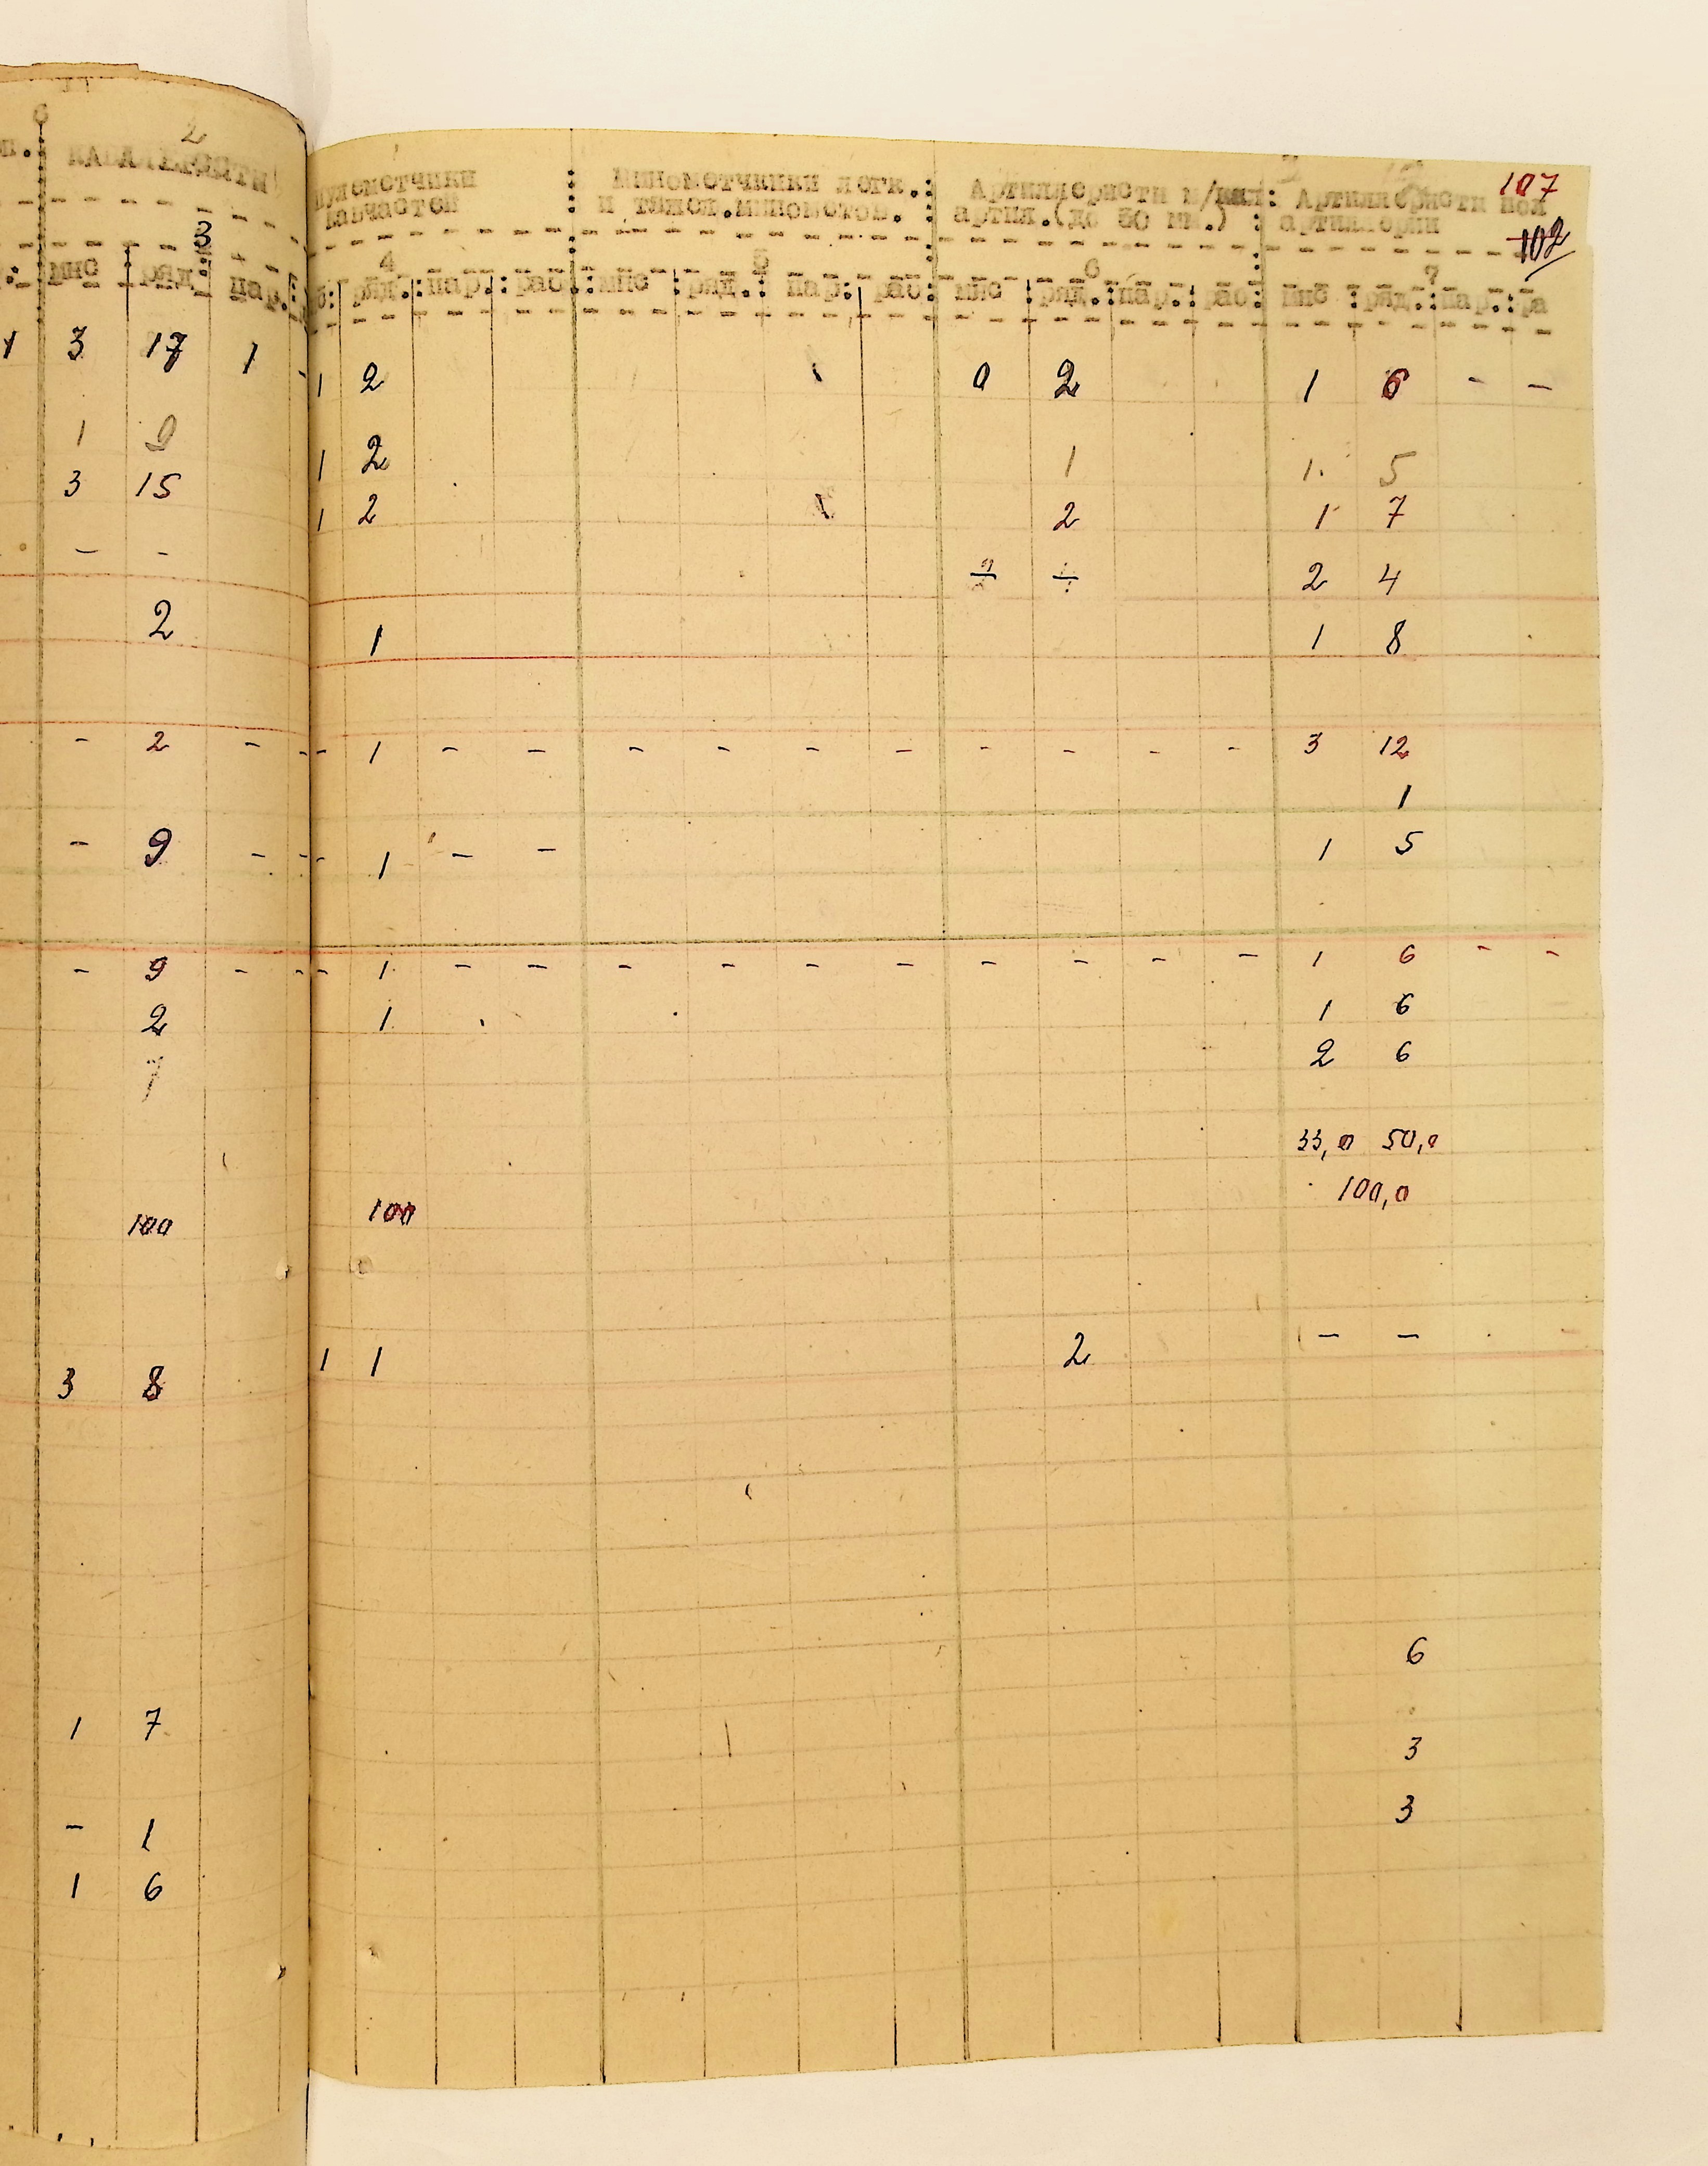 2
КАВАЛЕРИСТИ
3
мнс ряд. пар.
3 17 1
1 2
3 15
– -
2
- 2 -
- 9 -
- 9 -
2
7
100
3 8
1 7
- 1
1 6
107
102
Минометчики легк. : Артиллеристи : Артиллеристи
и тяжел.минометов. артил.(до 50 мм.) : артиллерии
4 5 6 7
ряд.:пар.:рас.:мнс :ряд.: пар.: рас: мнс :ряд.:пар.:рас: мнс :ряд.:пар.:ра
1 2 0 2 1 6 - -
1 2 1 1. 5
1 2 2 1 7
2 4
1 1 8
- 1 - - - - - - - - - - 3 12
1
- 1 - - 1 5
- 1 - - - - - - - - - - 1 6 - -
1 1 6
2 6
33,0 50,0
100,0
100
1 1 2 - -
6
3
3